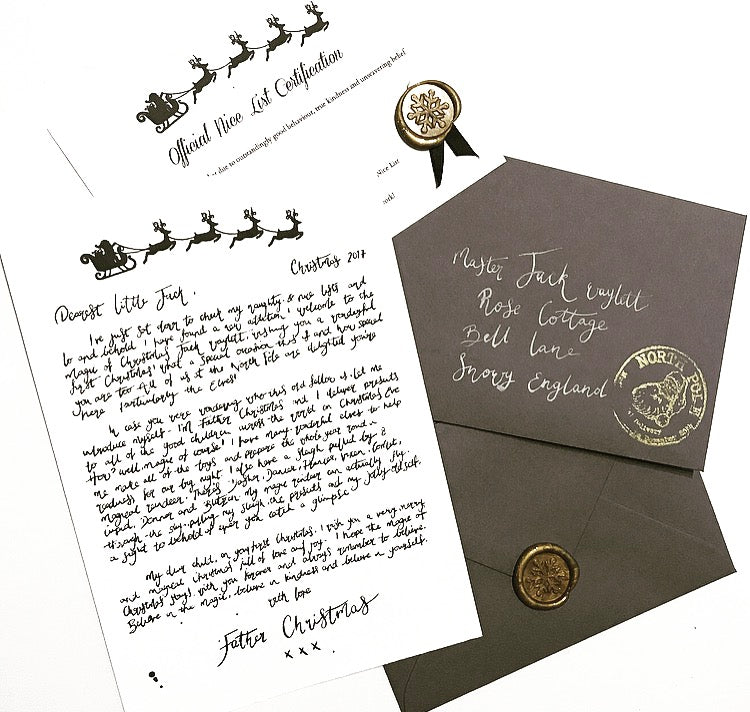 Official Nice List Certification
due to outstandingly good behaviour, true kindness and unwavering belief
Nice List
Christmas 2017
Dearest little Jack,
I've just sat down to check my naughty & nice lists and
lo and behold I have found a new addition! Welcome to the
magic of Christmas Jack Vaylett, wishing you a wonderful
first Christmas! What a special occasion this is and how special
you are too! All of us at the North Pole are delighted you're
here - particularly the Elves!
In case you were wondering who this old fellow is, let me
introduce myself. I'm Father Christmas and I deliver presents
to all of the good children across the world on Christmas Eve.
How? well, magic of course! I have many wonderful elves to help
me make all of the toys and prepare the whole year round in
readiness for our big night. I also have a sleigh pulled by 8
magical reindeer. There's Dasher, Dancer, Prancer, Vixen, Comet,
Cupid, Donner and Blitzen. My magic reindeer can actually fly
through the sky, pulling my sleigh, the presents and my jolly old self.
a sight to behold if ever you catch a glimpse!
My dear child, on your first Christmas, I wish you a very merry
and magical Christmas full of love and joy. I hope the magic of
Christmas stays with you forever and always remember to believe.
Believe in the magic, believe in kindness and believe in yourself.
with love
Father Christmas
x x x
Master Jack Vaylett
Rose Cottage
Bell Lane
Snowy England
NORTH POLE